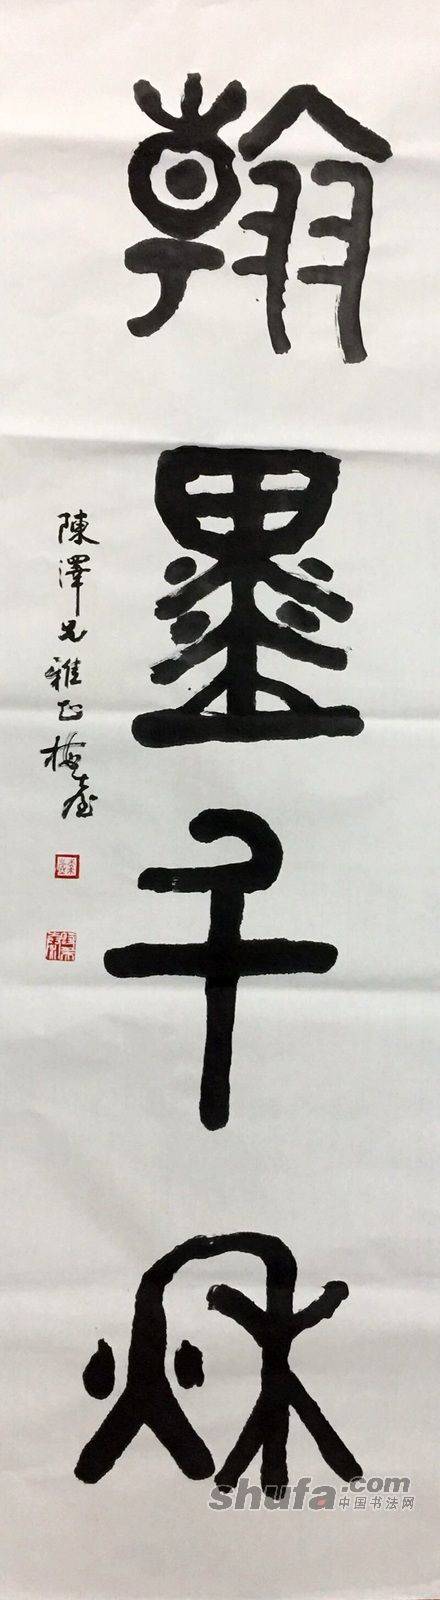 翰墨千秋
陳澤兄雅正 梅庵
shufa.com
中国书法网